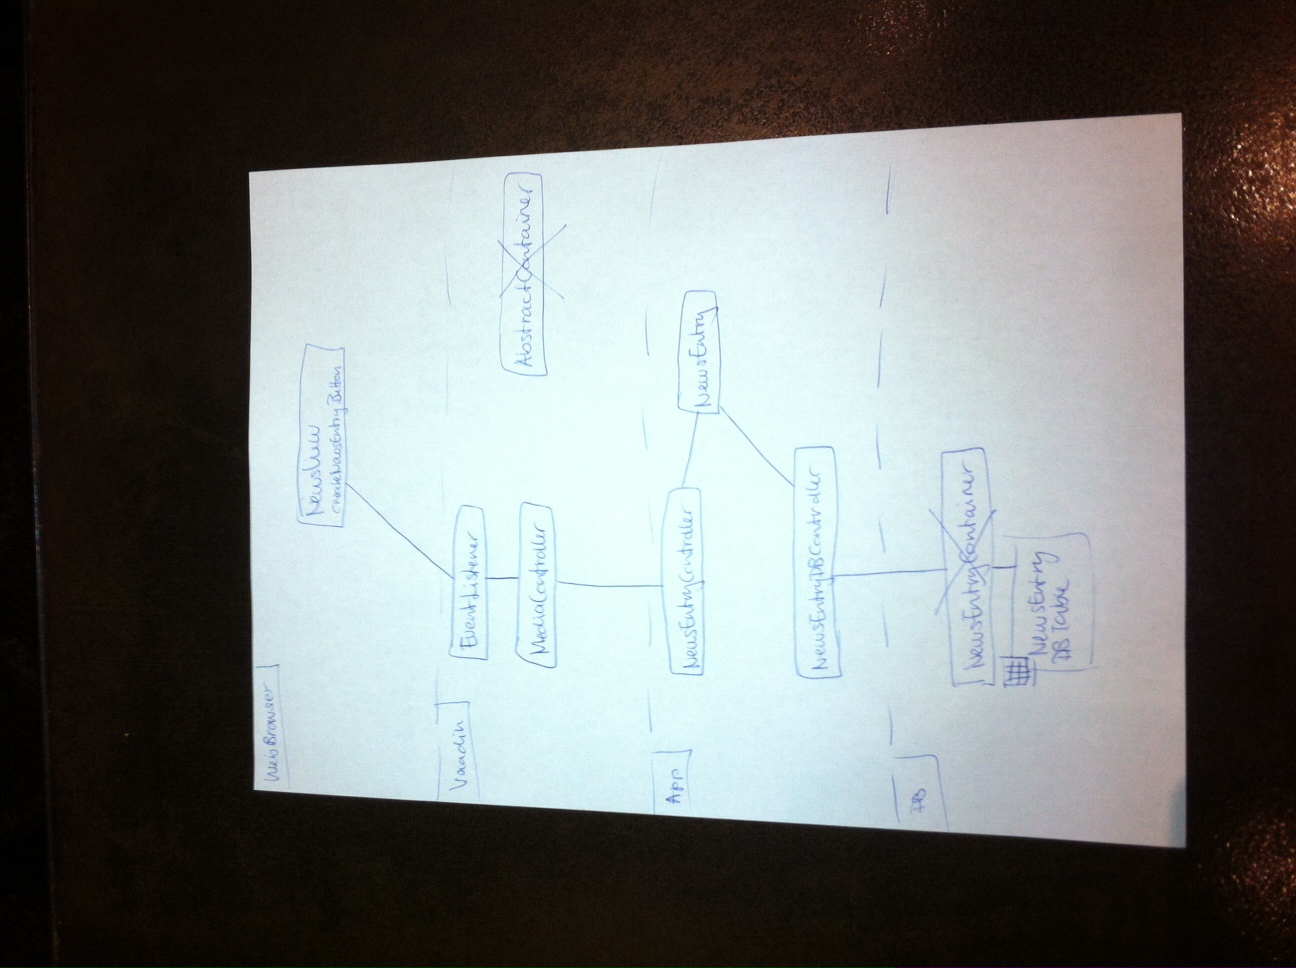 WebBrowser
NewsView
createNewsEntryButton
Vaadin
EventListener
AbstractContainer
MediaController
App
NewsEntryController
NewsEntry
NewsEntryDBController
DB
NewsEntryContainer
NewsEntry
DB Table